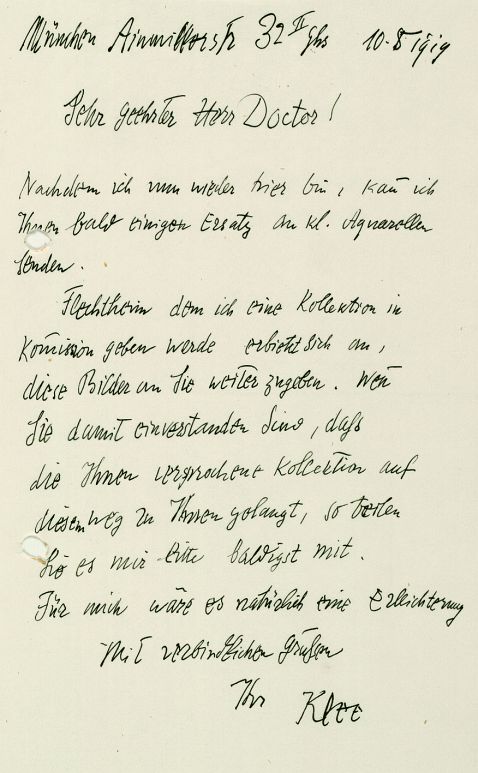 München Ainmillerstr 32 II Ghs 10. 8 1919
Sehr geehrter Herr Doctor!
Nachdem ich nun wieder hier bin, kan̄ ich
Ihnen bald einigen Ersatz an kl. Aquarellen
senden.
Flechtheim dem ich eine Kollektion in
Kom̄ission geben werde erbietet sich an,
diese Bilder an Sie weiter zugeben. Wen̄
Sie damit einverstanden sind, daß
die Ihnen versprochene Kollektion auf
diesem weg zu Ihnen gelangt, so teilen
Sie es mir bitte baldigst mit.
Für mich wäre es natürlich eine Erleichterung
Mit verbindlichen Grüßen
Ihr Klee